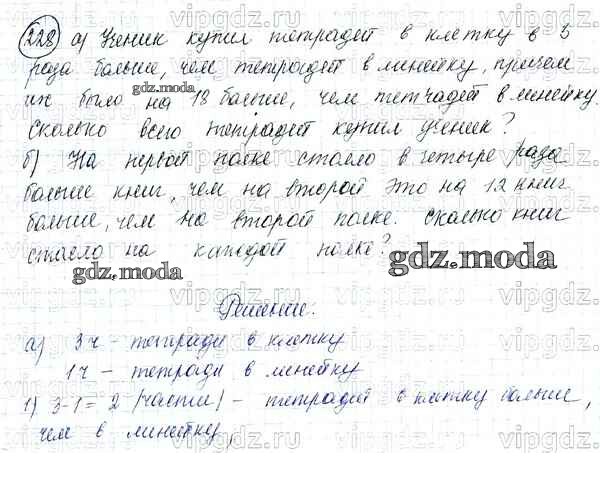 228) а) Ученик купил тетрадей в клетку в 3
раза больше, чем тетрадей в линейку, причем
их было на 18 больше, чем тетрадей в линейку.
Сколько всего тетрадей купил ученик?
б) На первой полке стояло в четыре раза
больше книг, чем на второй. Это на 12 книг
больше, чем на второй полке. Сколько книг
стояло на каждой полке?
gdz.moda
gdz.moda
gdz.moda
Решение:
а) 3ч - тетради в клетку
1ч - тетради в линейку
1) 3-1=2 (части) - тетрадей в клетку больше,
чем в линейку,